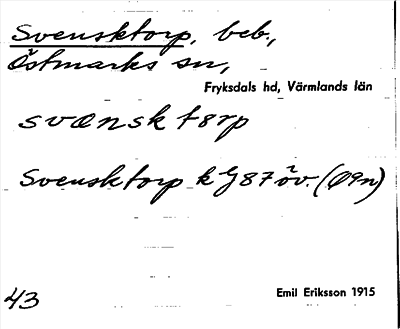 Svensktorp, beb.,
Östmarks sn,
Fryksdals hd, Värmlands län
svænsktɵrp
Svensktorp k G87 öv. (Ø9n)
43 Emil Eriksson 1915